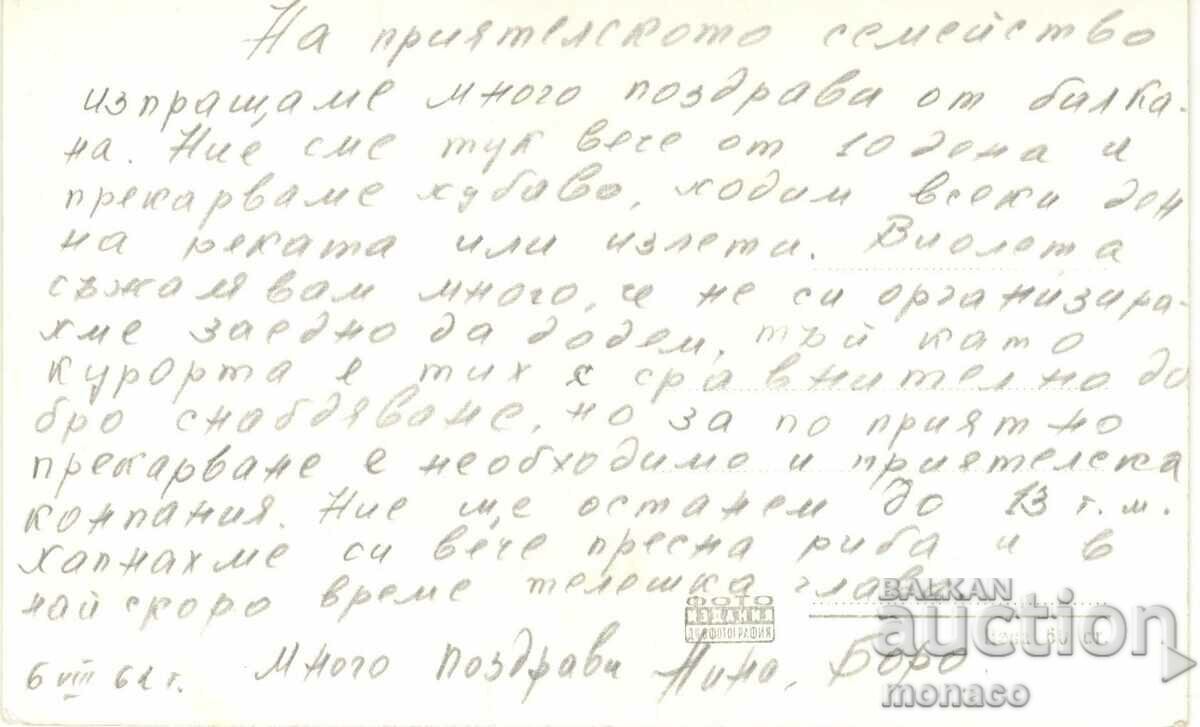 На приятелското семейство
изпращаме много поздрави от балка-
на. Ние сме тук вече от 10 дена и
прекарваме хубаво, ходим всеки ден
на реката или излети. Виолета
съжалявам много, че не си организира-
хме заедно да додем, тъй като
курорта е тих с сравнително до
бро снабдяване, но за по приятно
прекарване е необходимо и приятелска
компания. Ние ще останем до 13 т.м.
Хапнахме си вече прясна риба и в
най скоро време телешка глава
ФОТО
ИЗДАНИЯ
ДКФОТОГРАФИЯ
Цена 60 ст.
6 VIII 62 г. Много поздрави Нина, Боро
BALKAN
auction
monaco